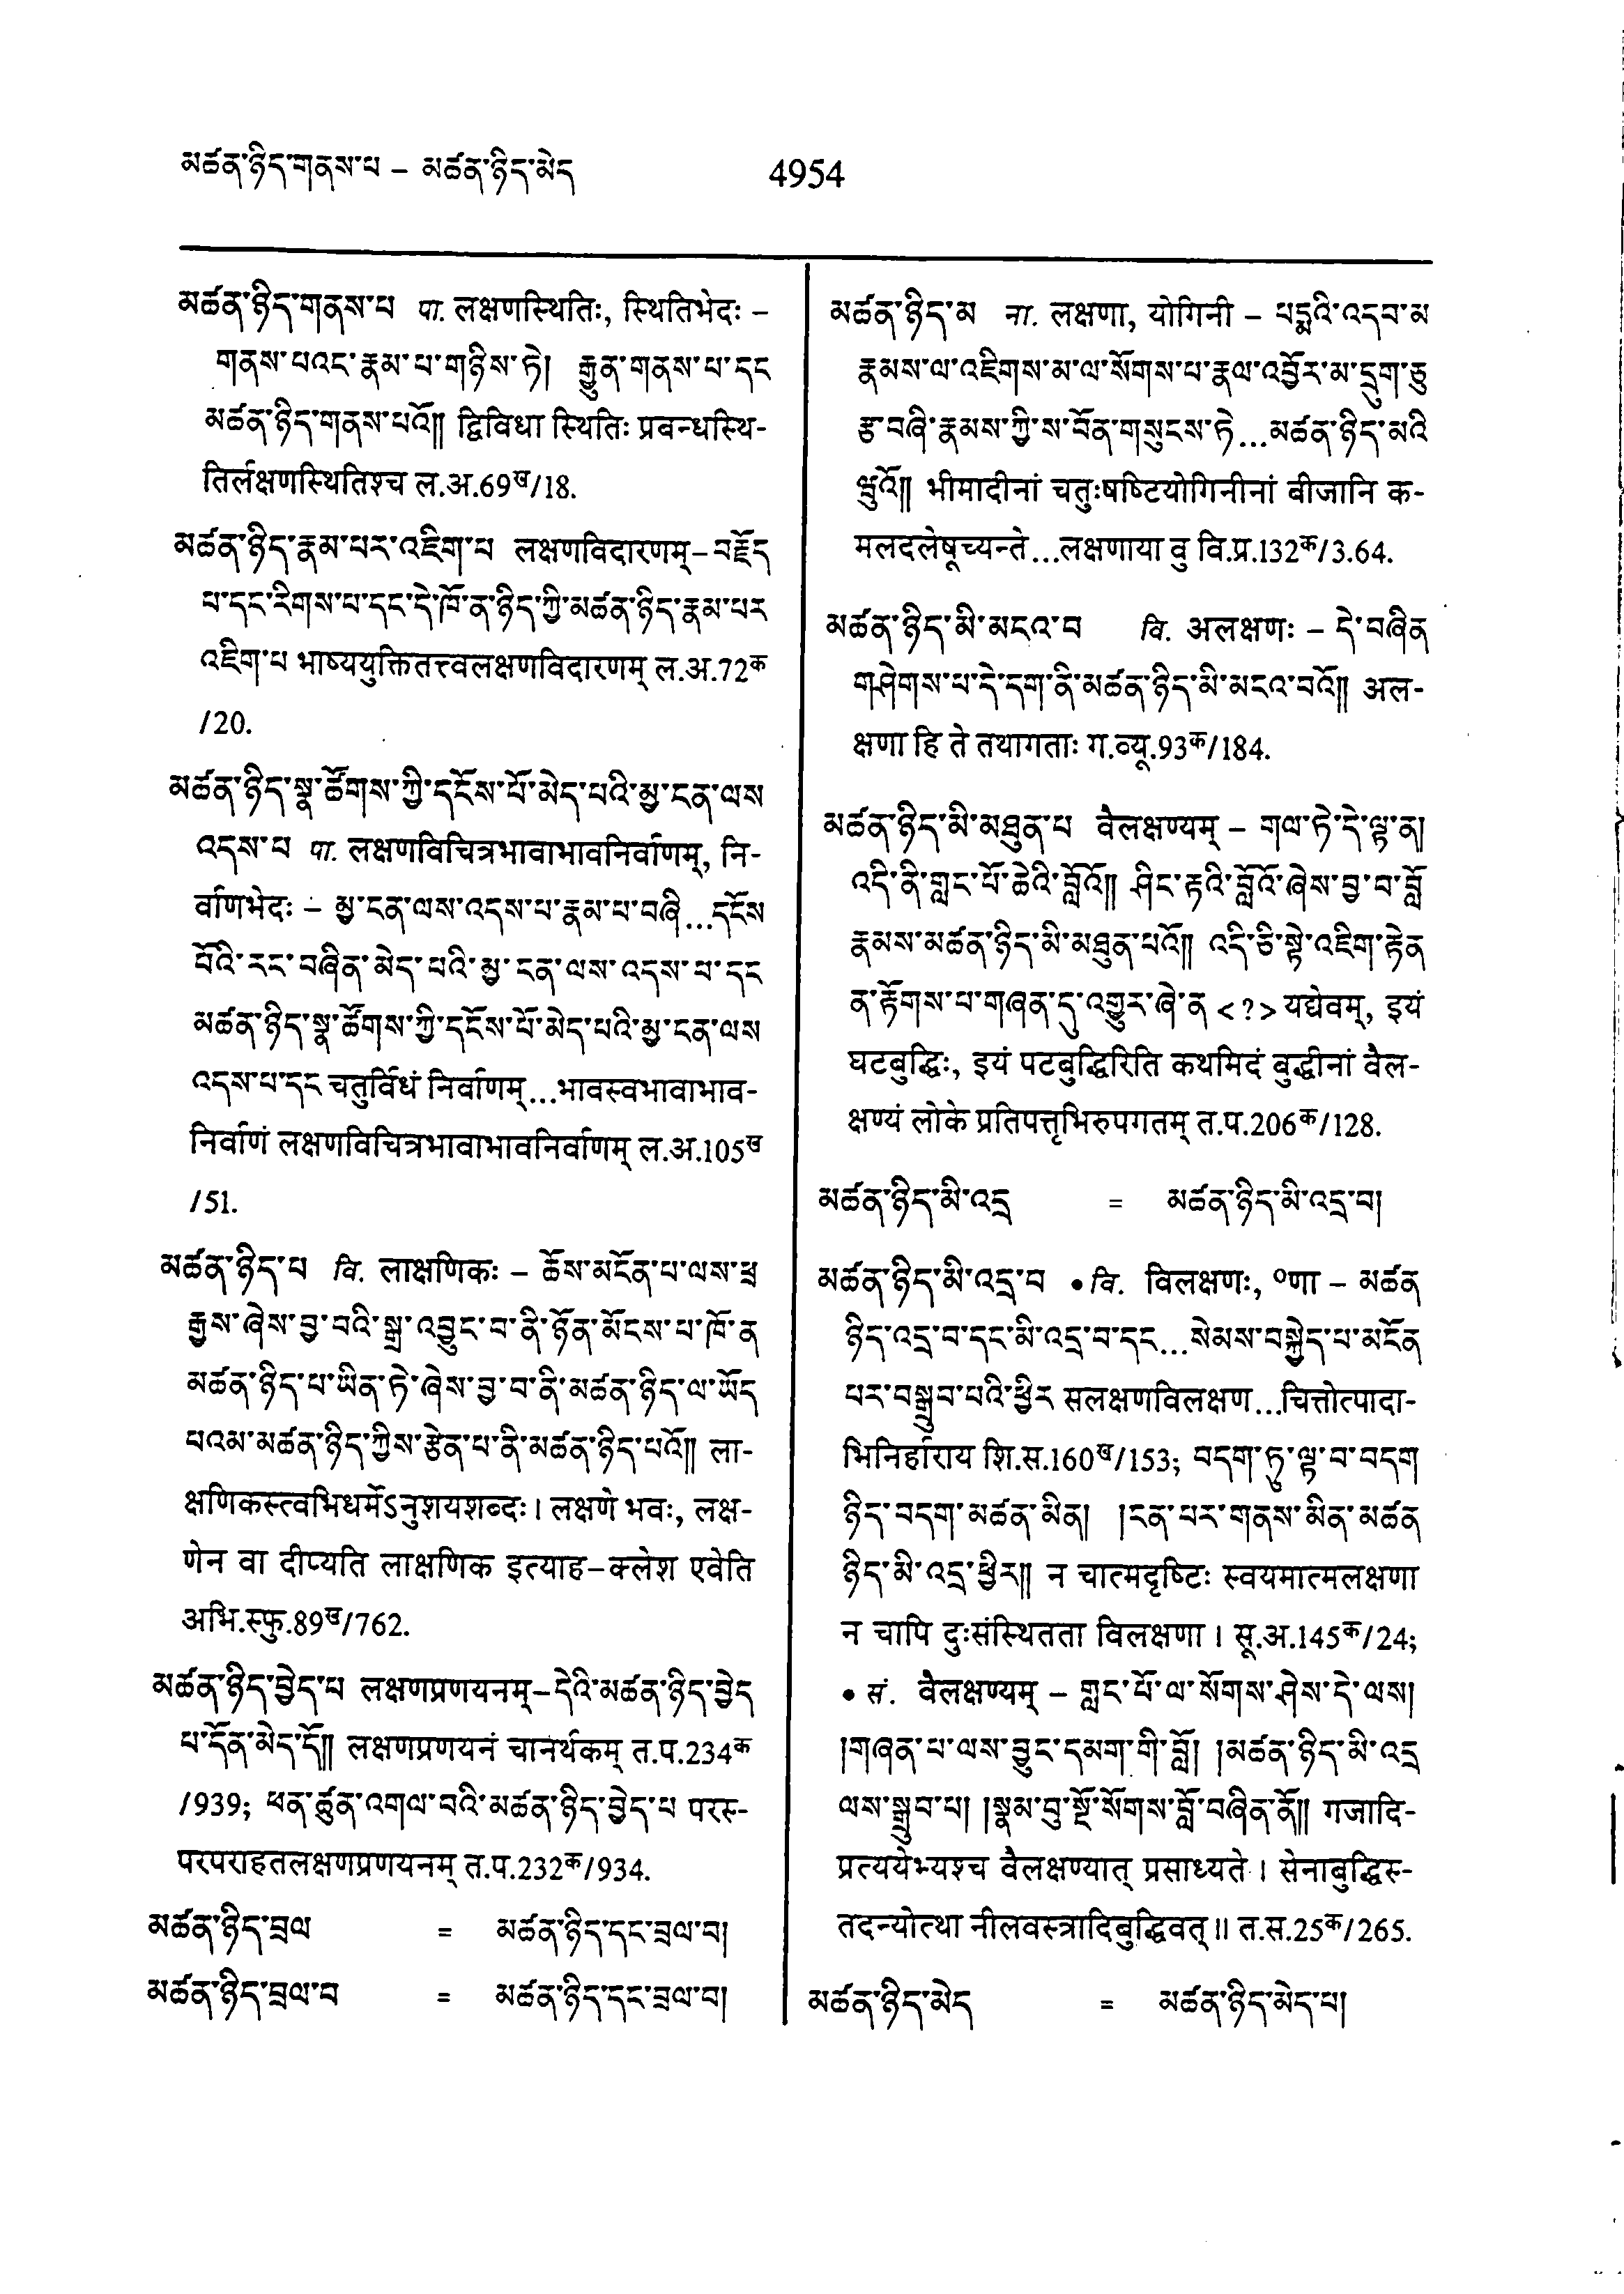 མཚན་ཉིད་གནས་པ – མཚན་ཉིད་མེད
4954
མཚན་ཉིད་གནས་པ པा. लक्षणस्थितिः, स्थितिभेदः –
གནས་པའང་རྣམ་པ་གཉིས་ཏེ། རྒྱུན་གནས་པ་དང
མཚན་ཉིད་གནས་པའོ།། द्विविधा स्थितिः प्रबन्धस्थि-
तिर्लक्षणस्थितिश्च ल.अ.69ख/18.
མཚན་ཉིད་རྣམ་པར་འཇིག་པ लक्षणविदारणम्–བརྗོད
པ་དང་རིགས་པ་དང་དེ་ཁོ་ན་ཉིད་ཀྱི་མཚན་ཉིད་རྣམ་པར
འཇིག་པ भाष्ययुक्तितत्त्वलक्षणविदारणम् ल.अ.72क
/20.
མཚན་ཉིད་སྣ་ཚོགས་ཀྱི་དངོས་པོ་མེད་པའི་མྱ་ངན་ལས
འདས་པ पा. लक्षणविचित्रभावाभावनिर्वाणम्, नि-
र्वाणभेदः – མྱ་ངན་ལས་འདས་པ་རྣམ་པ་བཞི...དངོས
པོའི་རང་བཞིན་མེད་པའི་མྱ་ངན་ལས་འདས་པ་དང
མཚན་ཉིད་སྣ་ཚོགས་ཀྱི་དངོས་པོ་མེད་པའི་མྱ་ངན་ལས
འདས་པ་དང चतुर्विधं निर्वाणम्...भावस्वभावाभाव-
निर्वाणं लक्षणविचित्रभावाभावनिर्वाणम् ल.अ.105ख
/51.
མཚན་ཉིད་པ वि. लाक्षणिकः – ཆོས་མངོན་པ་ལས་ཕྲ
རྒྱས་ཞེས་བྱ་བའི་སྒྲ་འབྱུང་བ་ནི་ཉོན་མོངས་པ་ཁོ་ན
མཚན་ཉིད་པ་ཡིན་ཏེ་ཞེས་བྱ་བ་ནི་མཚན་ཉིད་ལ་ཡོད
པའམ་མཚན་ཉིད་ཀྱིས་རྩེན་པ་ནི་མཚན་ཉིད་པའོ།། ला-
क्षणिकस्त्वभिधर्मेऽनुशयशब्दः। लक्षणे भवः, लक्ष-
णेन वा दीप्यति लाक्षणिक इत्याह–क्लेश एवेति
अभि.स्फु.89ख/762.
མཚན་ཉིད་བྱེད་པ लक्षणप्रणयनम्–དེའི་མཚན་ཉིད་བྱེད
པ་དོན་མེད་དོ།། लक्षणप्रणयनं चानर्थकम् त.प.234क
/939; ཕན་ཚུན་འགལ་བའི་མཚན་ཉིད་བྱེད་པ परस्-
परपराहतलक्षणप्रणयनम् त.प.232क/934.
མཚན་ཉིད་བྲལ = མཚན་ཉིད་དང་བྲལ་བ།
མཚན་ཉིད་བྲལ་བ = མཚན་ཉིད་དང་བྲལ་བ།
མཚན་ཉིད་མ ना. लक्षणा, योगिनी – པདྨའི་འདབ་མ
རྣམས་ལ་འཇིགས་མ་ལ་སོགས་པ་རྣལ་འབྱོར་མ་དྲུག་ཅུ
རྩ་བཞི་རྣམས་ཀྱི་ས་བོན་གསུངས་ཏེ...མཚན་ཉིད་མའི
ཝུའོ།། भीमादीनां चतुःषष्टियोगिनीनां बीजानि क-
मलदलेषूच्यन्ते...लक्षणाया वु वि.प्र.132क/3.64.
མཚན་ཉིད་མི་མངའ་བ वि. अलक्षणः – དེ་བཞིན
གཤེགས་པ་དེ་དག་ནི་མཚན་ཉིད་མི་མངའ་བའོ།། अल-
क्षणा हि ते तथागताः ग.व्यू.93क/184.
མཚན་ཉིད་མི་མཐུན་པ वैलक्षण्यम् – གལ་ཏེ་དེ་ལྟ་ན།
འདི་ནི་གླང་པོ་ཆེའི་བློའོ།། ཤིང་རྟའི་བློའོ་ཞེས་བྱ་བ་བློ
རྣམས་མཚན་ཉིད་མི་མཐུན་པའོ།། འདི་ཅི་སྟེ་འཇིག་རྟེན
ན་རྟོགས་པ་གཞན་དུ་འགྱུར་ཞེ་ན <?> यद्येवम्, इयं
घटबुद्धिः, इयं पटबुद्धिरिति कथमिदं बुद्धीनां वैल-
क्षण्यं लोके प्रतिपत्तृभिरुपगतम् त.प.206क/128.
མཚན་ཉིད་མི་འདྲ = མཚན་ཉིད་མི་འདྲ་བ།
མཚན་ཉིད་མི་འདྲ་བ •वि. विलक्षणः, ०णा – མཚན
ཉིད་འདྲ་བ་དང་མི་འདྲ་བ་དང...སེམས་བསྐྱེད་པ་མངོན
པར་བསྒྲུབ་པའི་ཕྱིར सलक्षणविलक्षण...चित्तोत्पादा-
भिनिर्हाराय शि.स.160ख/153; བདག་ཏུ་ལྟ་བ་བདག
ཉིད་བདག་མཚན་མིན། །ངན་པར་གནས་མིན་མཚན
ཉིད་མི་འདྲ་ཕྱིར།། न चात्मदृष्टिः स्वयमात्मलक्षणा
न चापि दुःसंस्थितता विलक्षणा। सू.अ.145क/24;
• सं. वैलक्षण्यम् – གླང་པོ་ལ་སོགས་ཤེས་དེ་ལས།
།གཞན་པ་ལས་བྱུང་དམག་གི་བློ། །མཚན་ཉིད་མི་འདྲ
ལས་སྒྲུབ་པ། །སྣམ་བུ་སྔོ་སོགས་བློ་བཞིན་ནོ།། गजादि-
प्रत्ययेभ्यश्च वैलक्षण्यात् प्रसाध्यते। सेनाबुद्धिस्-
तदन्योत्था नीलवस्त्रादिबुद्धिवत्॥ त.स.25क/265.
མཚན་ཉིད་མེད = མཚན་ཉིད་མེད་པ།